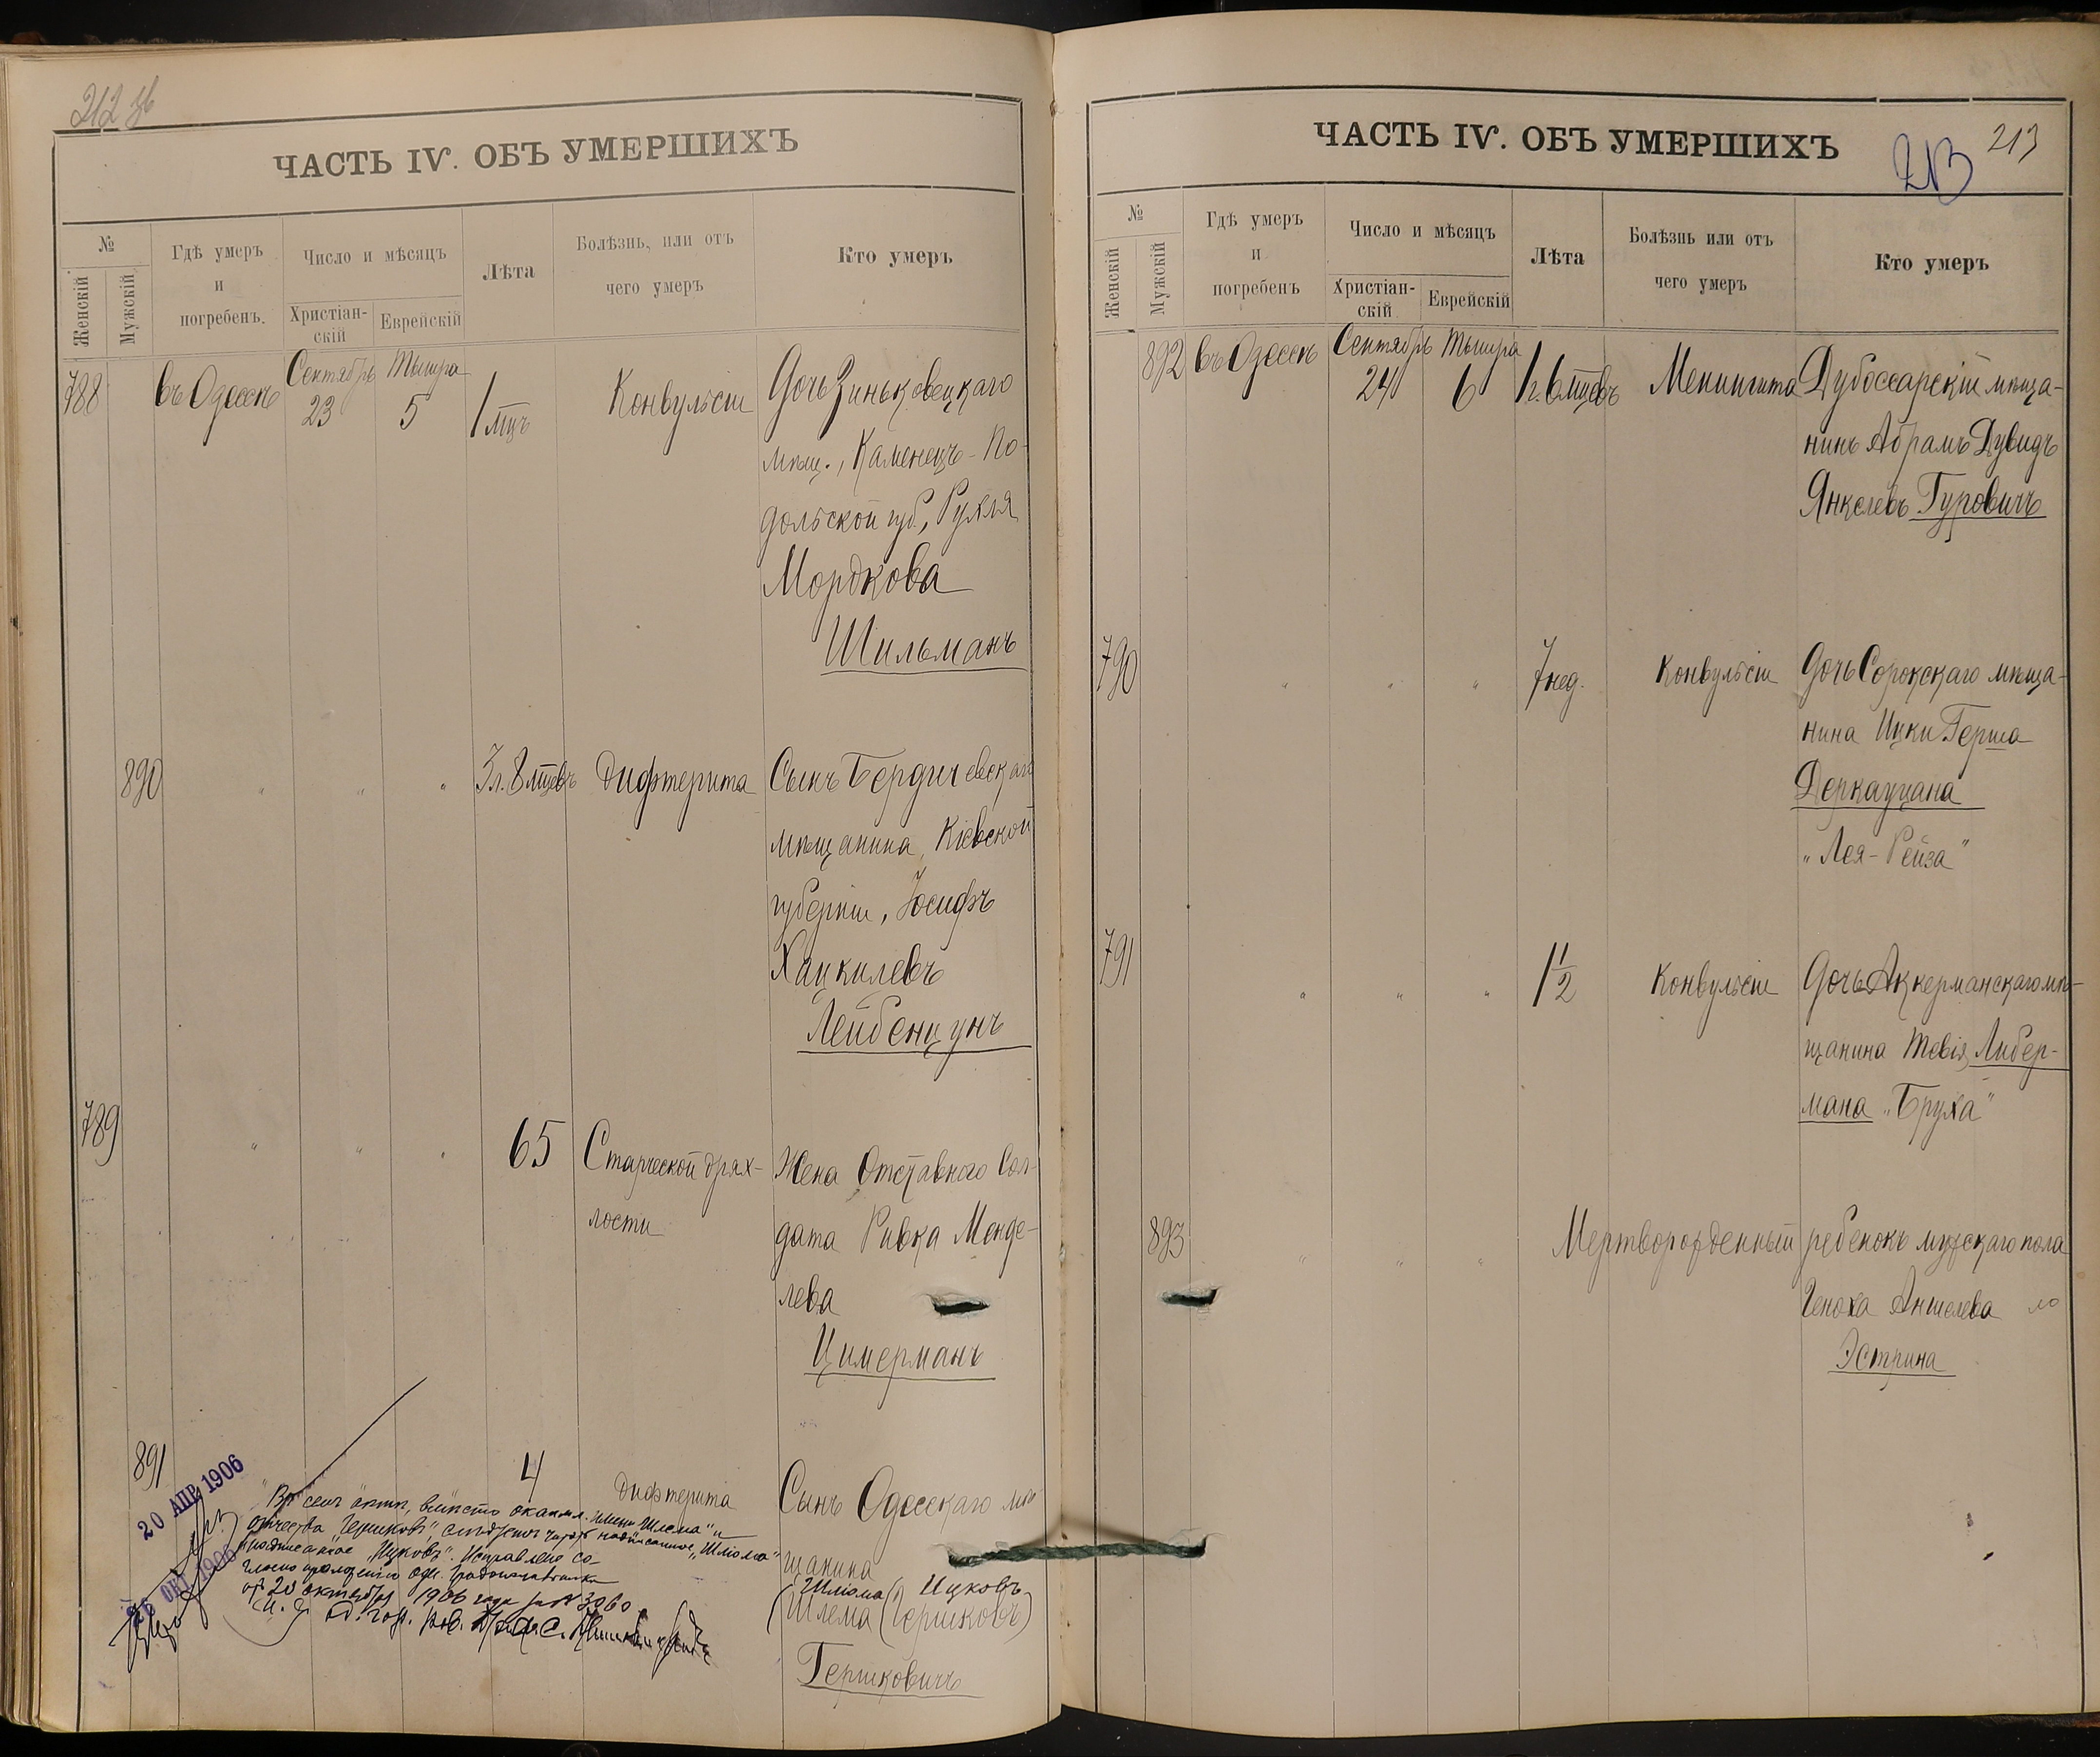 212 об
ЧАСТЬ IV. ОБЪ УМЕРШИХЪ
№
Женскій
Мужскій
Гдѣ умеръ
и
погребенъ.
Число и мѣсяцъ
Христіан-
скій
Еврейскій
Лѣта
Болѣзнь, или отъ
чего умеръ
Кто умеръ
788 въ Одессѣ Сентябрь 23 Тышра 5 1 мцъ Конвульсіи Дочь Зиньковецкаго
мѣщ., Каменецъ-По-
дольской губ., Рухля
Мордкова
Шильманъ
890 " " " 3 л. 8 мцевъ Дифтерита Сынъ Бердичевскаго
мѣщанина, Кіевской
губерніи, Іосифъ
Хацкилевъ
Лейбенцунъ
789 " " " 65 Старческой дрях- Жена Отставного Сол-
лости дата Ривка Менде-
лева
Цимерманъ
891 4 Дифтерита Сынъ Одесскаго мѣ-
щанина
Шліома Ицковъ
(Шлема) (Гершковъ)
Гершковичъ
20 АПР 1906
26 ОКТ 1906
Въ семъ актѣ, вмѣсто имени "Шлема" и
отчества "Гершковъ" слѣдуетъ читать надписанное "Шліома"
и надписанное "Ицковъ". Исправлено со-
гласно Од. Градоначальника
отъ 20 октября 1906 года за № 3060
И. д. Од. гор. рав.
ЧАСТЬ IV. ОБЪ УМЕРШИХЪ
213
213
№
Женскій
Мужскій
Гдѣ умеръ
и
погребенъ
Число и мѣсяцъ
Христіан-
скій
Еврейскій
Лѣта
Болѣзнь или отъ
чего умеръ
Кто умеръ
892 въ Одессѣ Сентябрь 24 Тышра 6 1 г. 6 мцевъ Менингита Дубоссарскій мѣща-
нинъ Абрамъ Дувидъ
Янкелевъ Гуровичъ
790 " " " 7 нед. Конвульсіи Дочь Сорокскаго мѣща-
нина Ицки Герша
Деркауцана
"Лея-Рейза"
791 " " " 1 1/2 Конвульсіи Дочь Аккерманскаго мѣ-
щанина Тевія Либер-
мана "Бруха"
893 " " " Мертворожденный ребенокъ мужскаго пола
Геноха Аншелева
Эстрина